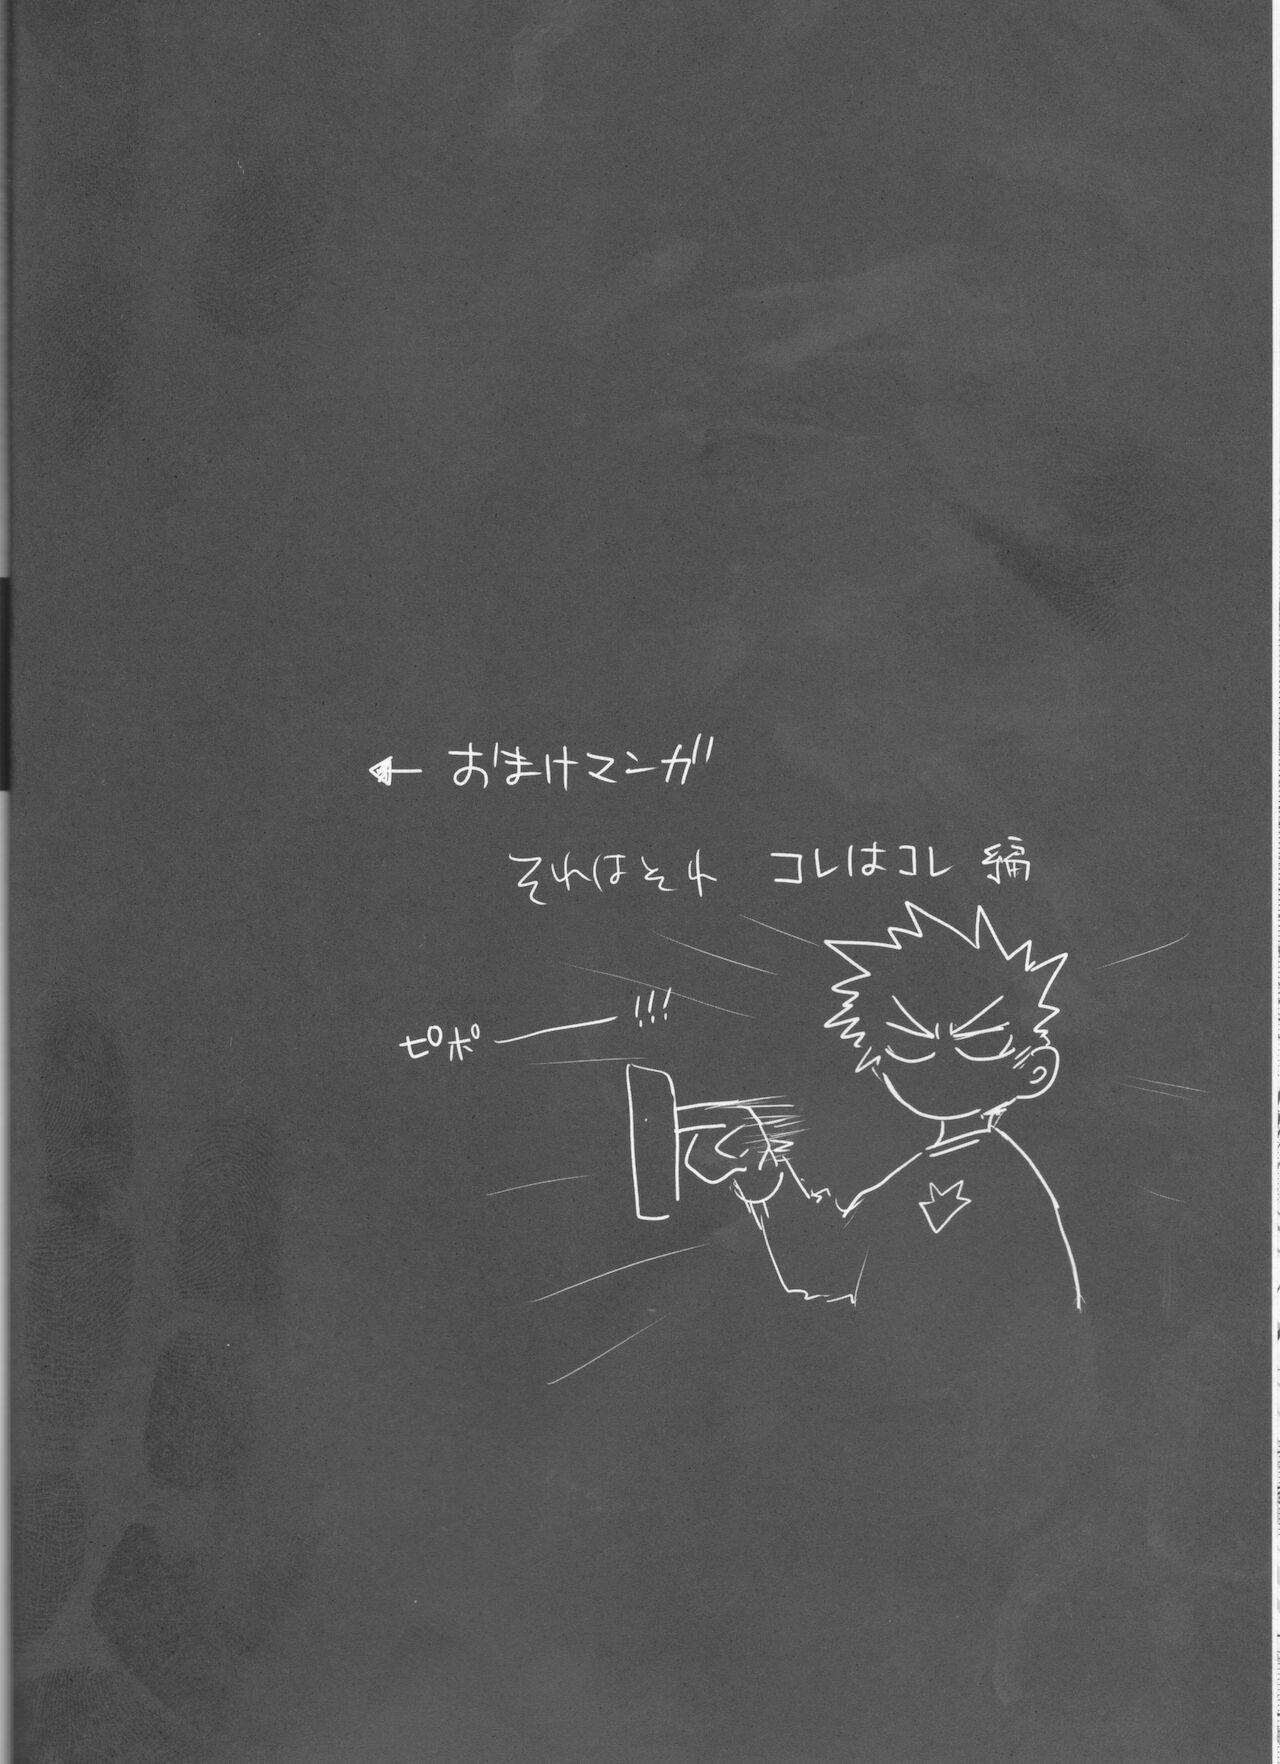 ← おまけマンガ
それはそれ コレはコレ 編
ピポー!!!